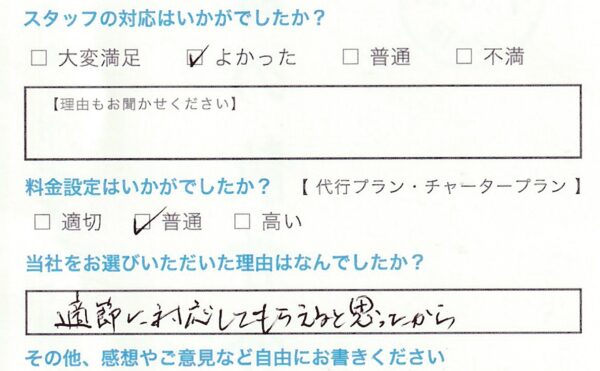 スタッフの対応はいかがでしたか？
□ 大変満足 ☑ よかった □ 普通 □ 不満
【理由もお聞かせください】
料金設定はいかがでしたか？ 【 代行プラン・チャータープラン 】
□ 適切 ☑ 普通 □ 高い
当社をお選びいただいた理由はなんでしたか？
適節に対応してもらえると思ったから
その他、感想やご意見など自由にお書きください